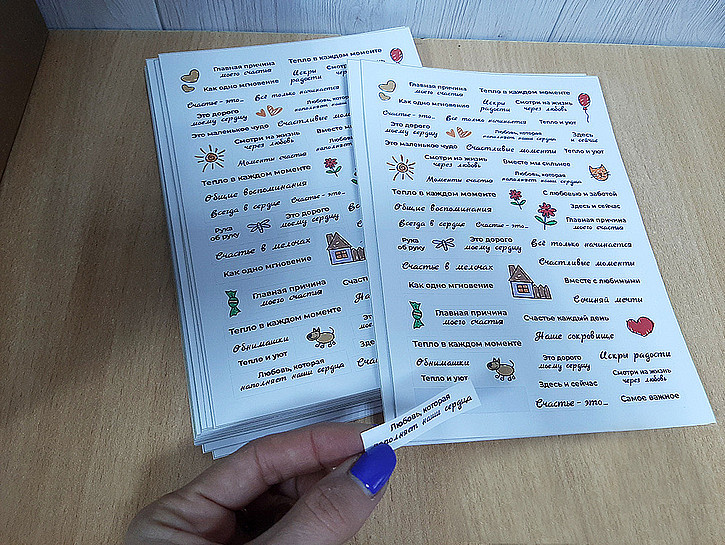 Главная причина
моего счастья
Тепло в каждом моменте
Как одно мгновение
Искры
радости
Смотри
через
Счастье - это...
Всё только начинается
Это дорого
моему сердцу
Любовь,
наполняет
Это маленькое чудо
Счастливые моменты
Смотри на жизнь
через любовь
Вместе
Моменты счастья
Любовь,
наполняет
Тепло в каждом моменте
Общие воспоминания
Счастье - это...
Всегда в сердце
Это дорого
моему сердцу
Рука
об руку
Счастье в мелочах
Как одно мгновение
Главная причина
моего счастья
Тепло в каждом моменте
Обнимашки
Тепло и уют
Любовь, которая
наполняет наши сердца
Главная причина
моего счастья
Тепло в каждом моменте
Как одно мгновение
Искры
радости
Смотри на жизнь
через любовь
Счастье - это...
Всё только начинается
Это дорого
моему сердцу
Любовь, которая
наполняет наши сердца
Тепло и уют
Здесь
и сейчас
Это маленькое чудо
Счастливые моменты
Тепло и уют
Смотри на жизнь
через любовь
Вместе мы сильнее
Моменты счастья
Любовь, которая
наполняет наши сердца
Тепло в каждом моменте
С любовью и заботой
Общие воспоминания
Здесь и сейчас
Всегда в сердце
Счастье - это...
Главная причина
моего счастья
Рука
об руку
Это дорого
моему сердцу
Всё только начинается
Счастье в мелочах
Счастливые моменты
Как одно мгновение
Вместе с любимыми
Сочиняй мечты
Главная причина
моего счастья
Счастье каждый день
Тепло в каждом моменте
Наше сокровище
Обнимашки
Это дорого
моему сердцу
Искры радости
Тепло и уют
Здесь и сейчас
Смотри на жизнь
через любовь
Счастье - это...
Самое важное
Любовь, которая
наполняет наши сердца